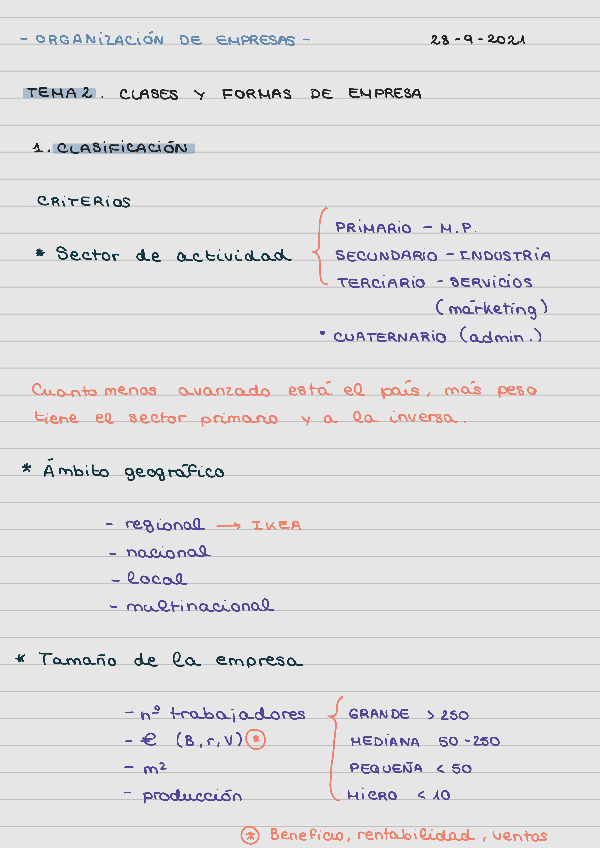 - ORGANIZACIÓN DE EMPRESAS -
28-9-2021
TEMA 2. CLASES Y FORMAS DE EMPRESA
1. CLASIFICACIÓN
CRITERIOS
* Sector de actividad
PRIMARIO - M.P.
SECUNDARIO - INDUSTRIA
TERCIARIO - SERVICIOS
(márketing)
• CUATERNARIO (admin.)
Cuanto menos avanzado está el país, más peso
tiene el sector primario y a la inversa.
* Ámbito geográfico
- regional → IKEA
- nacional
- local
- multinacional
* Tamaño de la empresa
- nº trabajadores
- € (B, r, V) *
- m²
- producción
GRANDE > 250
MEDIANA 50-250
PEQUEÑA < 50
MICRO < 10
* Beneficio, rentabilidad, ventas